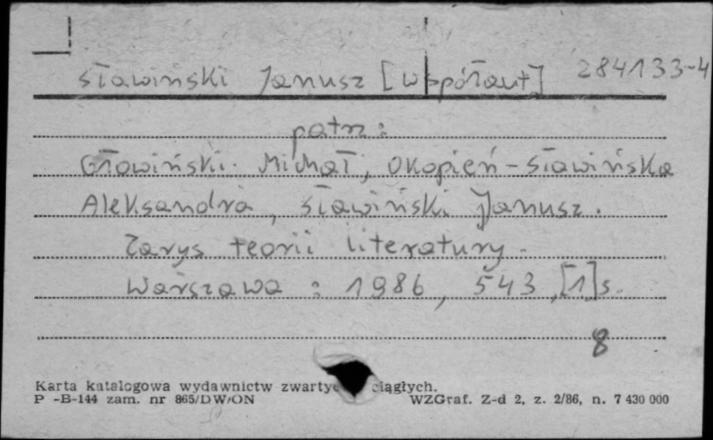 Sławiński Janusz [współaut] 284133-4
patrz:
Głowiński Michał, Okopień-Sławińska
Aleksandra, Sławiński Janusz.
Zarys teorii literatury.
Warszawa : 1986, 543, [1] s.
8
Karta katalogowa wydawnictw ciągłych.
P -B-144 zam. nr 865/DW/ON WZGraf. Z-d 2, z. 2/86, n. 7 430 000